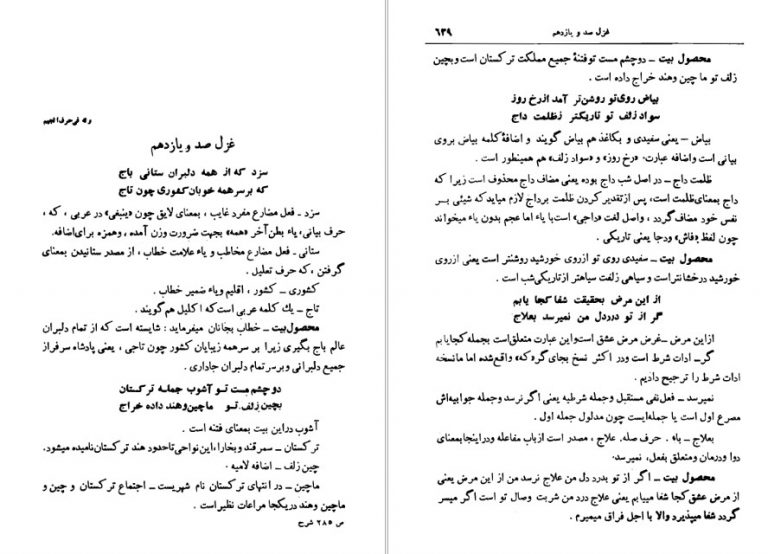 وله فی‌حرف‌الجیم
غزل صد و یازدهم
سزد که از همه دلبران ستانی باج
که برسرهمه خوبان‌کشوری چون تاج
سزد ـ فعل مضارع مفرد غایب ، بمعنای لایق چون «ینبغی» در عربی ، که ،
حرف بیانی، یاء بطن‌آخر «همه» بجهت ضرورت وزن آمده ، وهمزه برای‌اضافه.
ستانی ـ فعل مضارع مخاطب و یاء علامت خطاب ، از مصدر ستانیدن بمعنای
گرفتن ، که حرف تعلیل .
کشوری ــ کشور ، اقلیم ویاء ضمیر خطاب.
تاج ــ یك کلمه عربی است‌که اکلیل هم‌گویند .
محصول‌بیت ــ خطاب بجانان میفرماید : شایسته است که از تمام دلبران
عالم باج بگیری زیرا بر سرهمه زیبایان کشور چون تاجی ، یعنی پادشاه سرفراز
جمیع دلبرانی و برسر تمام دلبران جاداری .
دوچشم‌مست تـو آشوب جمله ترکستان
بچین‌زلف‌تـو ماچین‌وهند داده خراج
آشوب دراین بیت بمعنای فتنه است .
ترکستان ــ سمرقند وبخارا،این‌نواحی‌تاحدود هند ترکستان‌نامیده میشود.
چین زلف ــ اضافه لامیه .
ماچین ــ در انتهای ترکستان نام شهریست ـ اجتماع ترکستان و چین و
ماچین وهند دریکجا مراعات نظیراست .
ص ۲۸۵ شرح
غزل صد و یازدهم
۶۳۹
محصول بیت ــ دوچشم مست توفتنهٔ جمیع مملکت ترکستان است‌وبچین
زلف تو ما چین وهند خراج داده است .
بیاض روی‌تو روشن‌تر آمد ازرخ روز
سواد زلف تو تاریکتر زظلمت داج
بیاض ــ یعنی سفیدی و بکاغذ هم بیاض گویند و اضافهٔ کلمه بیاض بروی
بیانی است واضافه عبارت «رخ روز» و «سواد زلف» هم همینطور است .
ظلمت داج ــ در اصل شب داج بوده یعنی مضاف داج محذوف است زیرا که
داج بمعنای‌ظلمت است، پس ازتقدیر کردن ظلمت برداج لازم میاید که شیئی بر
نفس خود مضاف‌گردد ، واصل لفت «داجی» است‌با یاء اما عجم بدون یاء میخواند
چون لفظ «فاش» ودجا یعنی تاریکی .
محصول بیت ــ سفیدی روی تو ازروی خورشید روشنتر است یعنی ازروی
خورشید درخشانتراست و سیاهی زلفت سیاهتر ازتاریکی‌شب است .
از این مرض بحقیقت شفا کجا یابم
گر از تو درددل من نمیرسد بعلاج
ازاین مرض ــ غرض مرض عشق است‌واین عبارت متعلق‌است بجمله کجایابم
گرــ ادات شرط است ودر اکثر نسخ بجای گر «که» واقع‌شده اما مانسخه
ادات شرط را ترجیح دادیم .
نمیرسد ــ فعل‌نفی مستقبل وجمله شرطیه یعنی اگر نرسد وجمله جوابیه‌اش
مصرع اول است یا جمله‌ایست چون مدلول جمله اول .
بعلاج ــ باء . حرف صله. علاج ، مصدر است ازباب مفاعله ودراینجابمعنای
دوا ودرمان ومتعلق بفعل، نمیرسد.
محصول بیت ــ اگر از تو بدرد دل من علاج نرسد من از این مرض یعنی
از مرض عشق کجا شفا مییابم یعنی علاج درد من شربت وصال تو است اگر میسر
گردد شفا میپذیرد والا با اجل فراق میمیرم .